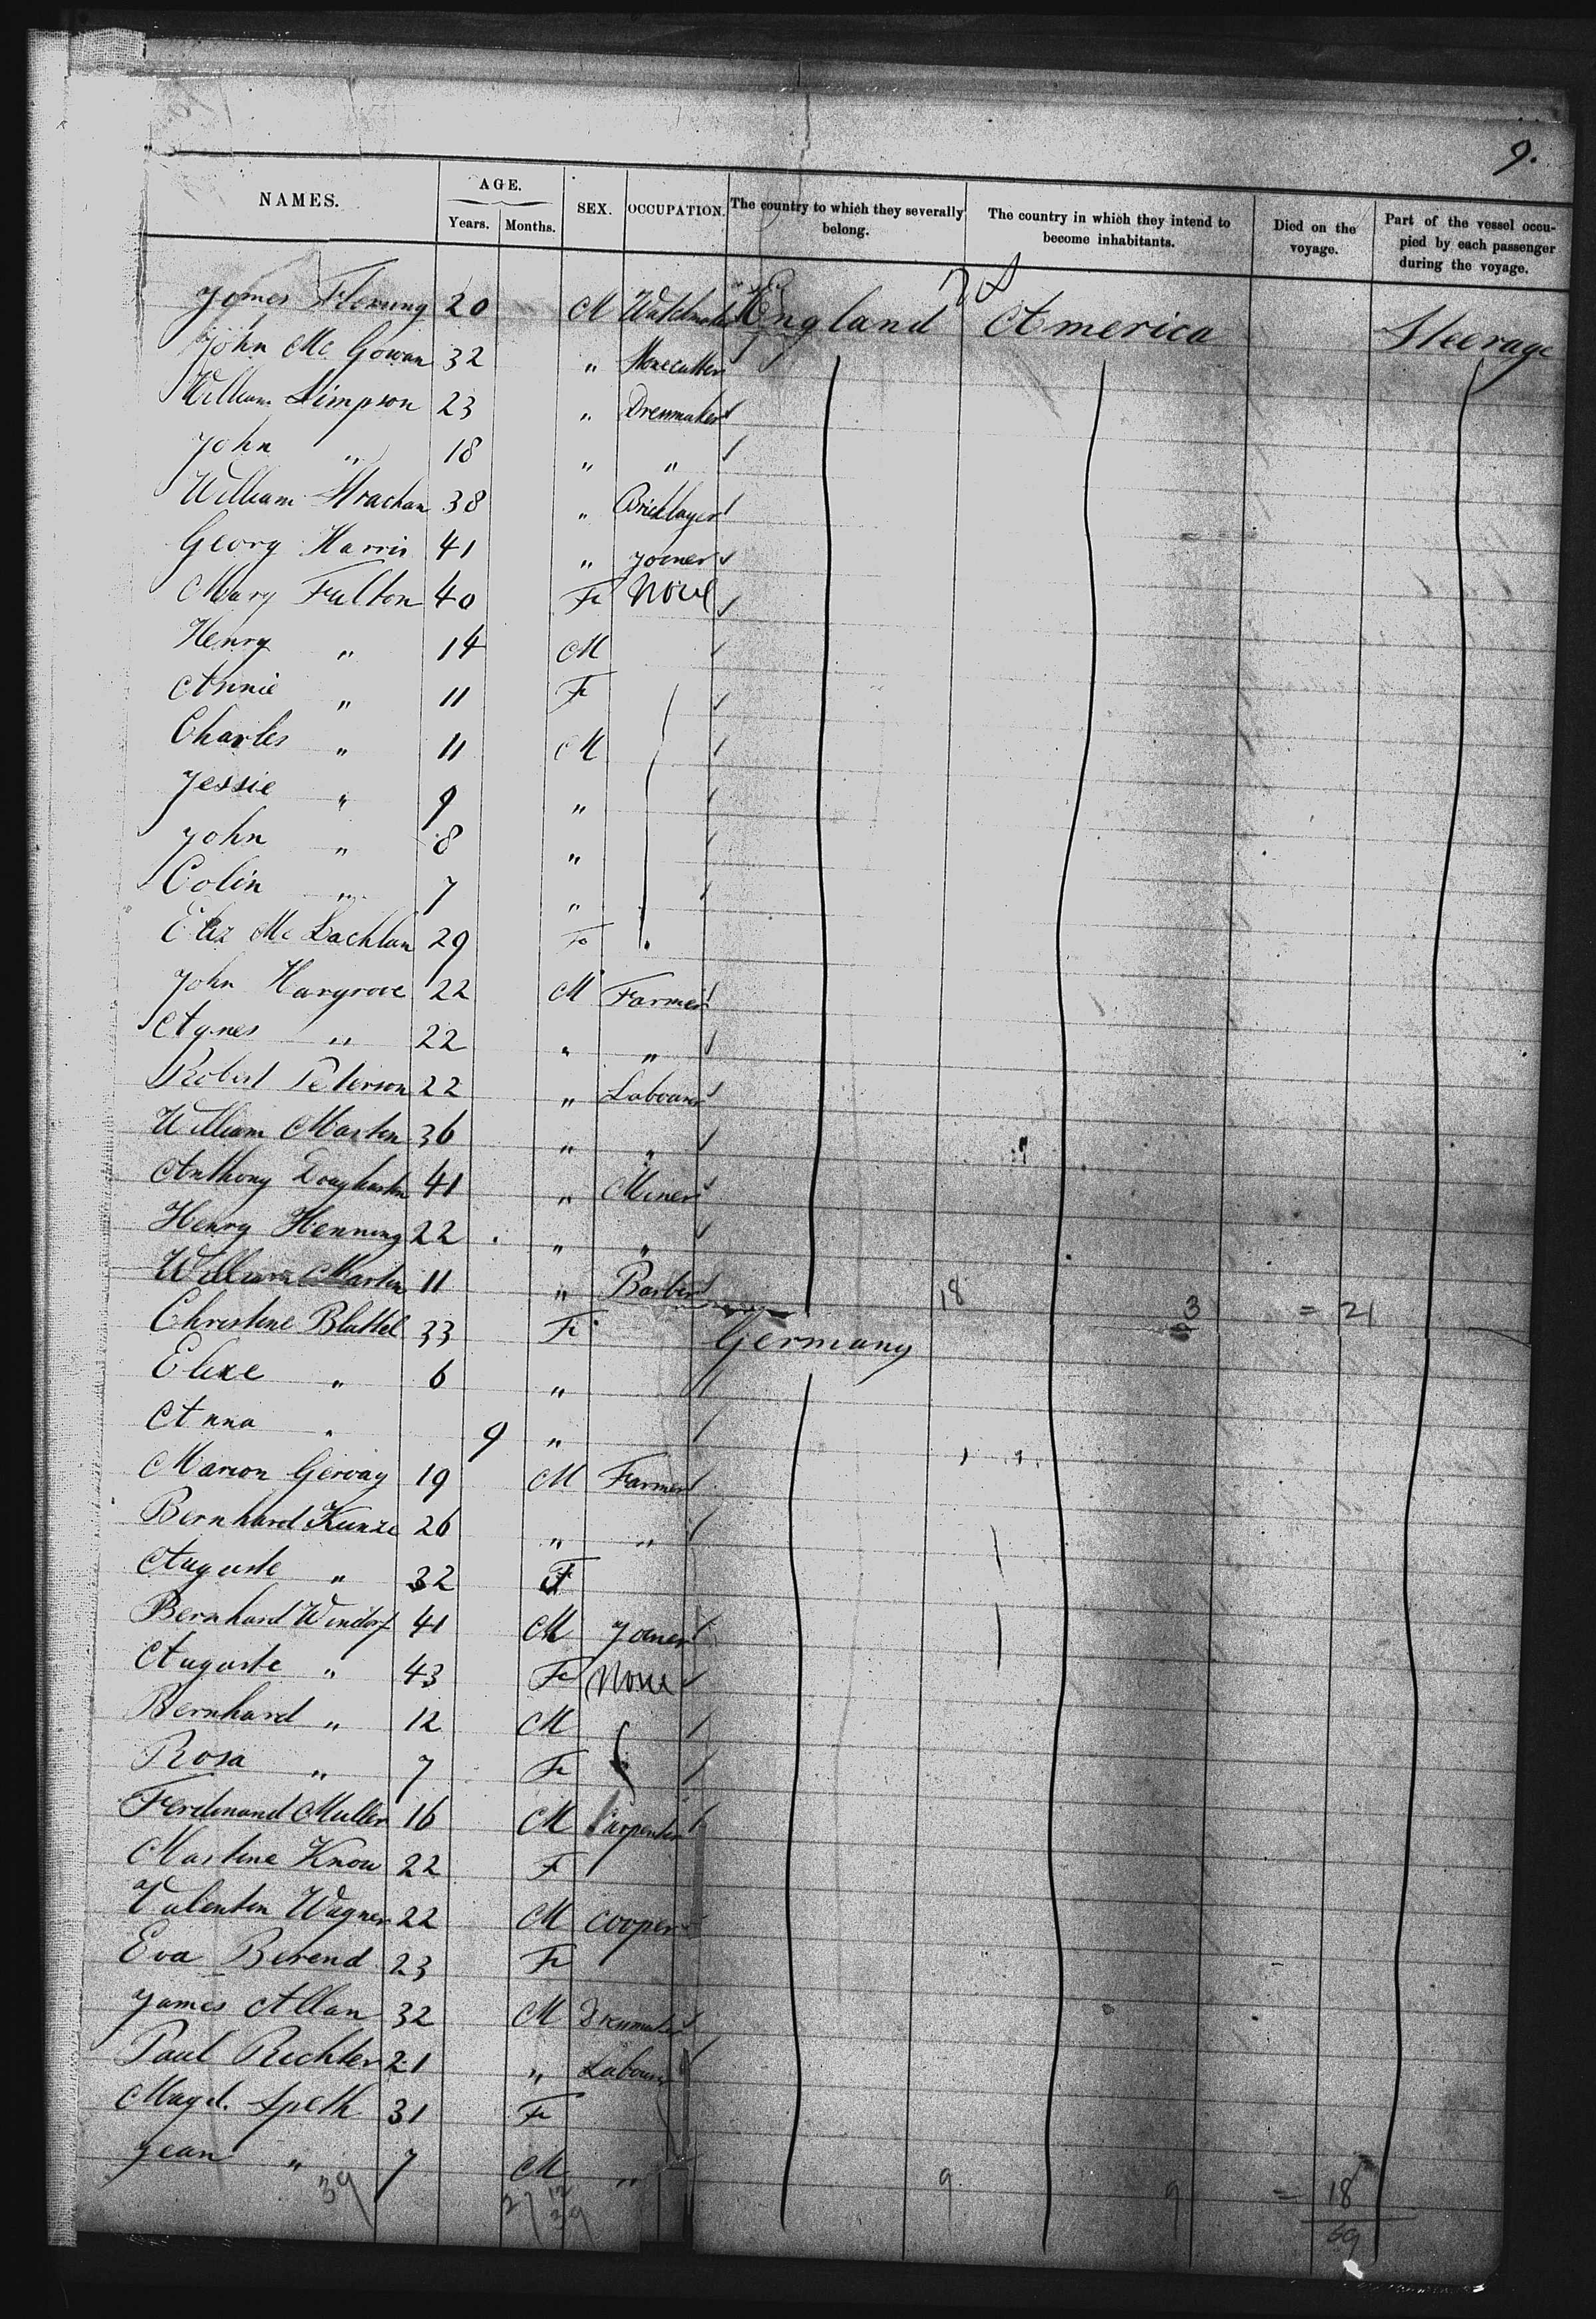 9.
NAMES. AGE. Years. Months. SEX. OCCUPATION. The country to which they severally belong. The country in which they intend to become inhabitants. Died on the voyage. Part of the vessel occupied by each passenger during the voyage.
James Fleming 20 M Watchmaker England America Steerage
John Mc Gowan 32 " Stonecutter
William Simpson 23 "
John " 18 " "
William Strachan 38 " Bricklayer
Georg Harris 41 " Joiner
Mary Fulton 40 Fe None
Henry " 14 M
Annie " 11 Fe
Charles " 11 M
Jessie " 9 "
John " 8 "
Colin " 7 "
Eliz Mc Lachlan 29 Fe
John Hargrove 22 M Farmer
Agnes " 22 " "
Robert Peterson 22 " Labourer
William Martin 36 " "
Anthony 41 " Miner
Henry Henning 22 " "
William Martin 11 " Barber 18 3 = 21
Christine Blattel 33 Fe Germany
Elise " 6 "
Anna " 9 "
Marion Gervay 19 M Farmer
Bernhard Kunze 26 " "
Auguste " 32 F
Bernhard Windorf 41 M Joiner
Auguste " 43 Fe None
Bernhard " 12 M
Rosa " 7 Fe
Ferdinand Muller 16 M Carpenter
Martine Knou 22 F
Valentin Wagner 22 M Cooper
Eva Berend 23 Fe
James Allan 32 M
Paul Richter 21 " Labourer
Magd. Speth 31 Fe
Jean " 7 M "
39 27 12 39 9 9 = 18